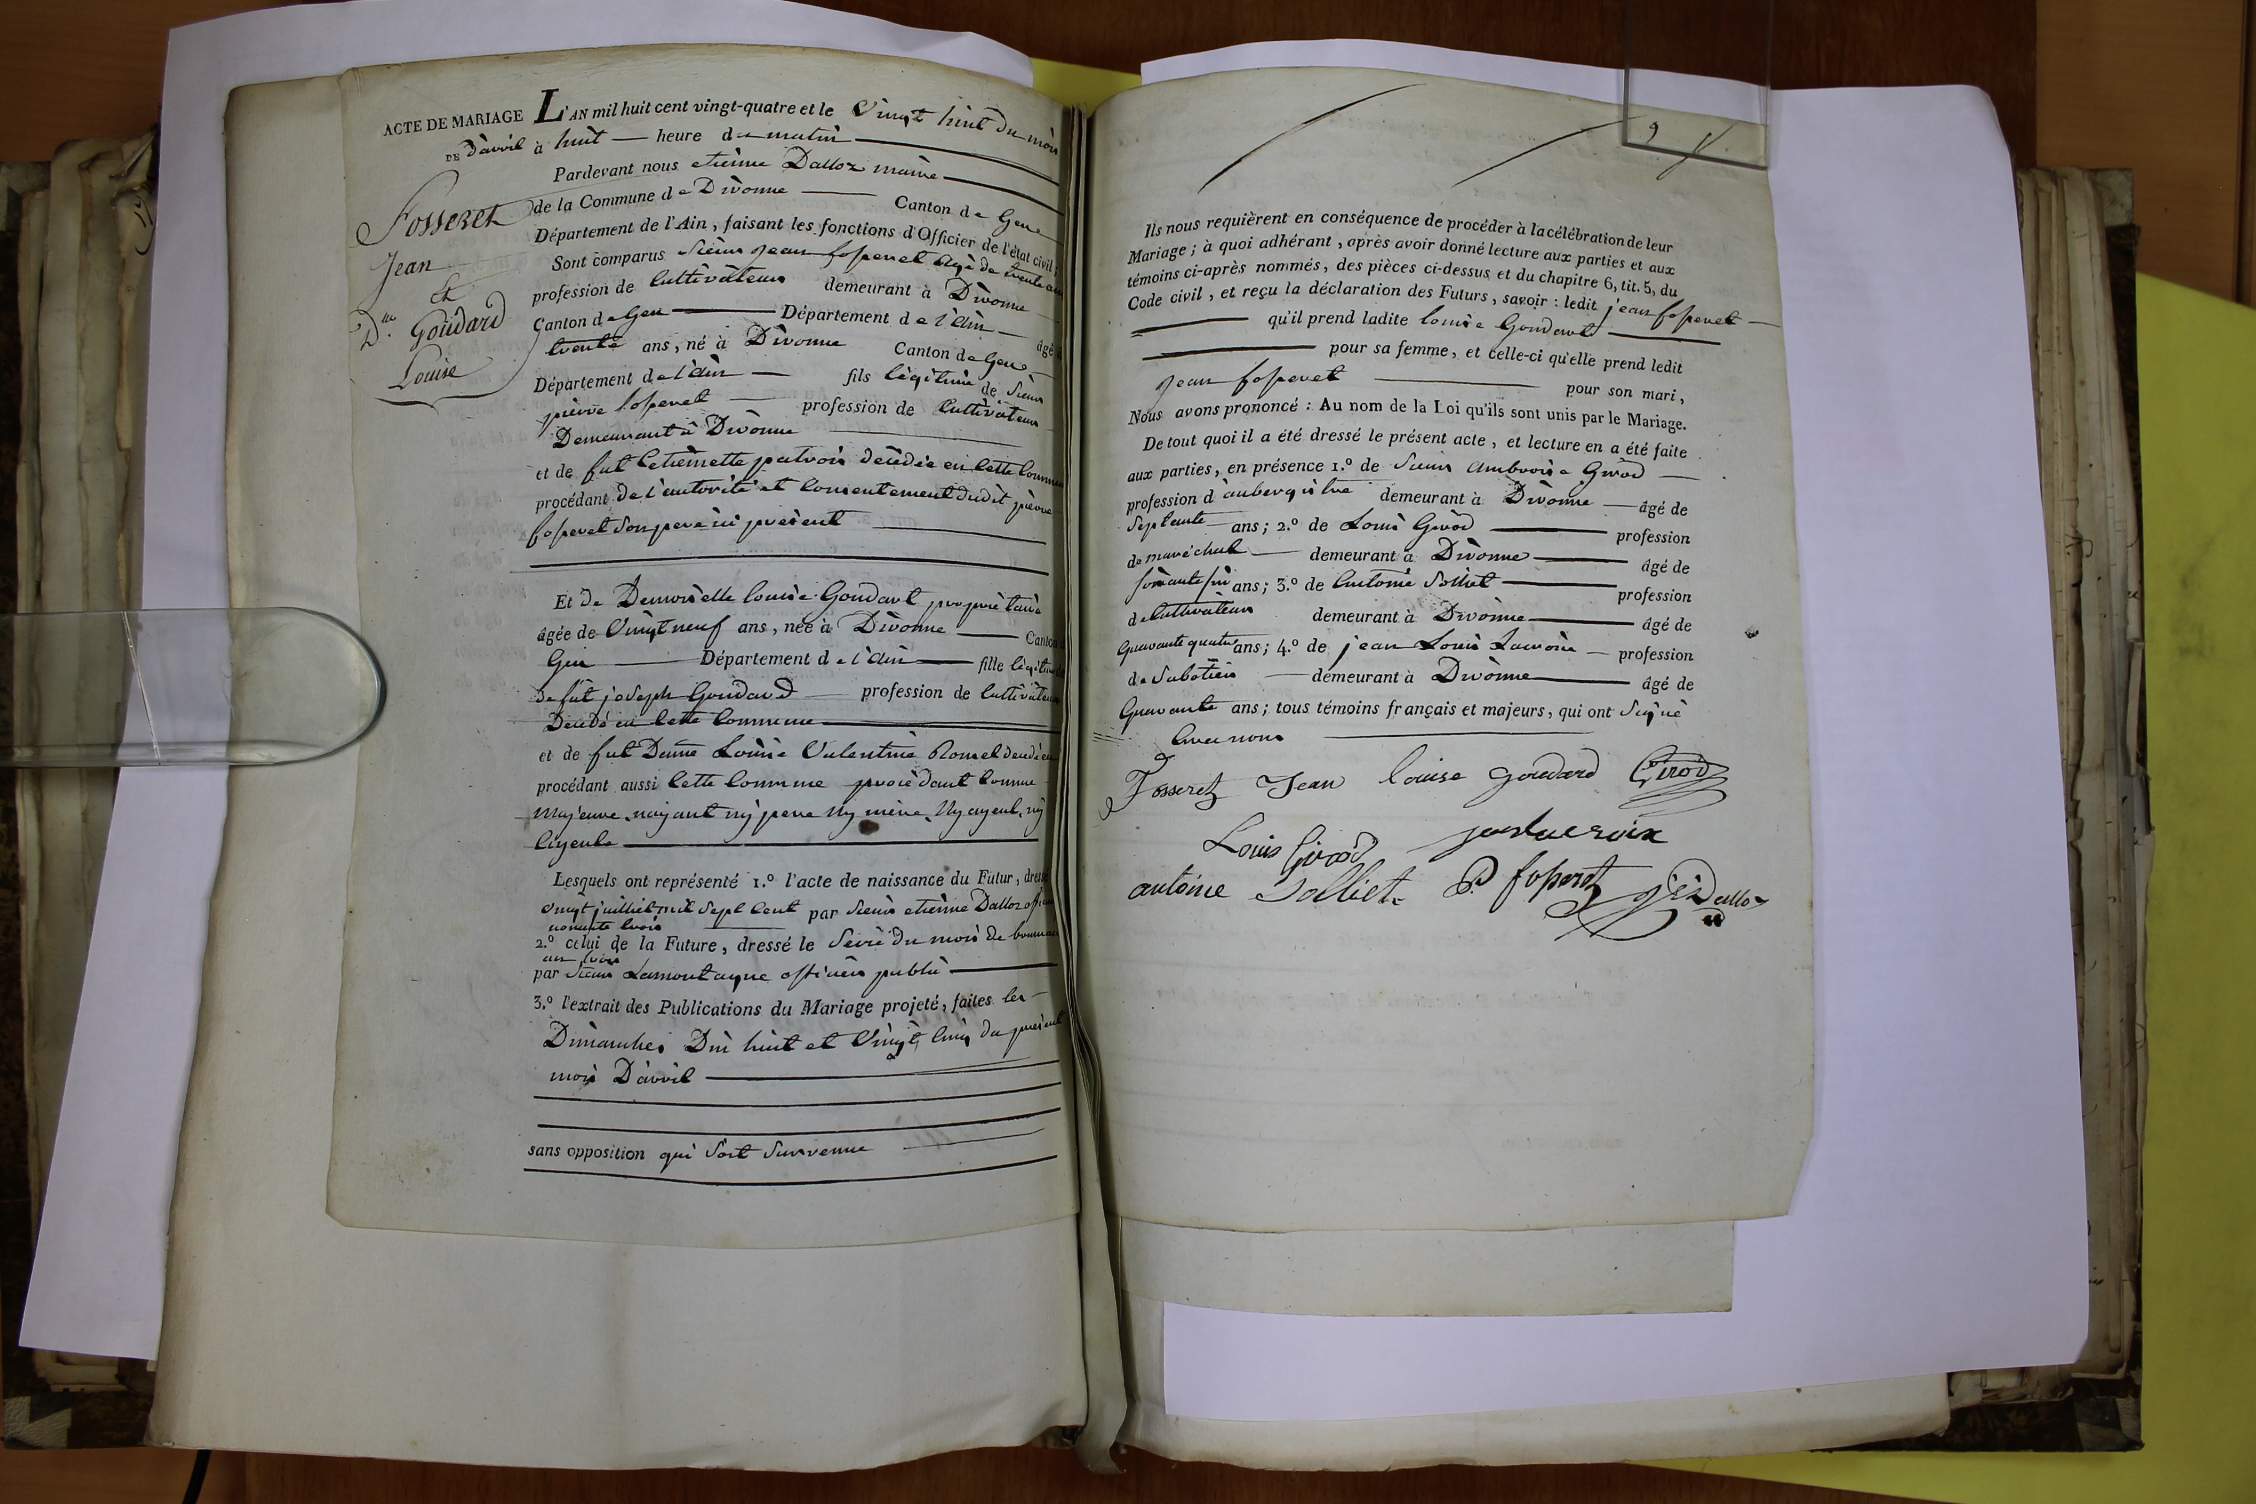 ACTE DE MARIAGE
DE
Fosseret
Jean
et
Dlle Goudard
Louise
L'AN mil huit cent vingt-quatre et le Vingt huit du mois
d'avril à huit heure du matin
Pardevant nous etienne Dalloz maire
de la Commune de Divonne Canton de Gex
Département de l'Ain, faisant les fonctions d'Officier de l'état civil;
Sont comparus Sieur jean fosseret agé de trente ans
profession de Cultivateur demeurant à Divonne
Canton de Gex Département de l'Ain âgé
trente ans, né à Divonne Canton de Gex
Département de l'Ain fils légitime de Sieur
pierre fosseret profession de Cultivateur
Demeurant à Divonne
et de fut Etiennette patrois décédée en Cette Commune
procédant de l'autorité et Consentement dudit pierre
fosseret Son pere ici présent
Et de Demoiselle louise Goudart propriétaire
âgée de Vingt neuf ans, née à Divonne Canton
Gex Département de l'Ain fille légitime
De fut joseph Goudard profession de Cultivateur
Décédé en Cette Commune
et de fut Dame Louise Valentine Romel
procédant aussi Cette Commune procédant Comme
Majeure, nayant ny pere Ny mère, Ny ayeul, ny
Ayeule
Lesquels ont représenté 1.º l'acte de naissance du Futur, dressé
Vingt juilliet mil Sept Cent par Sieur etienne Dalloz
nonante trois
2.º celui de la Future, dressé le Seize du mois de brumaire
an trois
par Sieur Lamontagne officier public
3.º l'extrait des Publications du Mariage projeté, faites les
Dimanches Dix huit et Vingt Cinq du présent
mois D'avril
sans opposition qui Soit Survenue
9
Ils nous requièrent en conséquence de procéder à la célébration de leur
Mariage; à quoi adhérant, après avoir donné lecture aux parties et aux
témoins ci-après nommés, des pièces ci-dessus et du chapitre 6, tit. 5, du
Code civil, et reçu la déclaration des Futurs, savoir: ledit jean fosseret
qu'il prend ladite louise Goudart
pour sa femme, et celle-ci qu'elle prend ledit
jean fosseret pour son mari,
Nous avons prononcé: Au nom de la Loi qu'ils sont unis par le Mariage.
De tout quoi il a été dressé le présent acte, et lecture en a été faite
aux parties, en présence 1.º de Sieur Ambroise Girod
profession d'aubergiste demeurant à Divonne âgé de
Septante ans; 2.º de Louis Girod profession
de maréchal demeurant à Divonne âgé de
soixante six ans; 3.º de Antoine Solliet profession
de Cultivateur demeurant à Divonne âgé de
Quarante quatre ans; 4.º de jean Louis Lacroix profession
de Sabotier demeurant à Divonne âgé de
Quarante ans; tous témoins français et majeurs, qui ont Signé
Avec nous
Fosseret Jean louise goudard Girod
Louis Girod jean lacroix
antoine Solliet P fosseret Dalloz